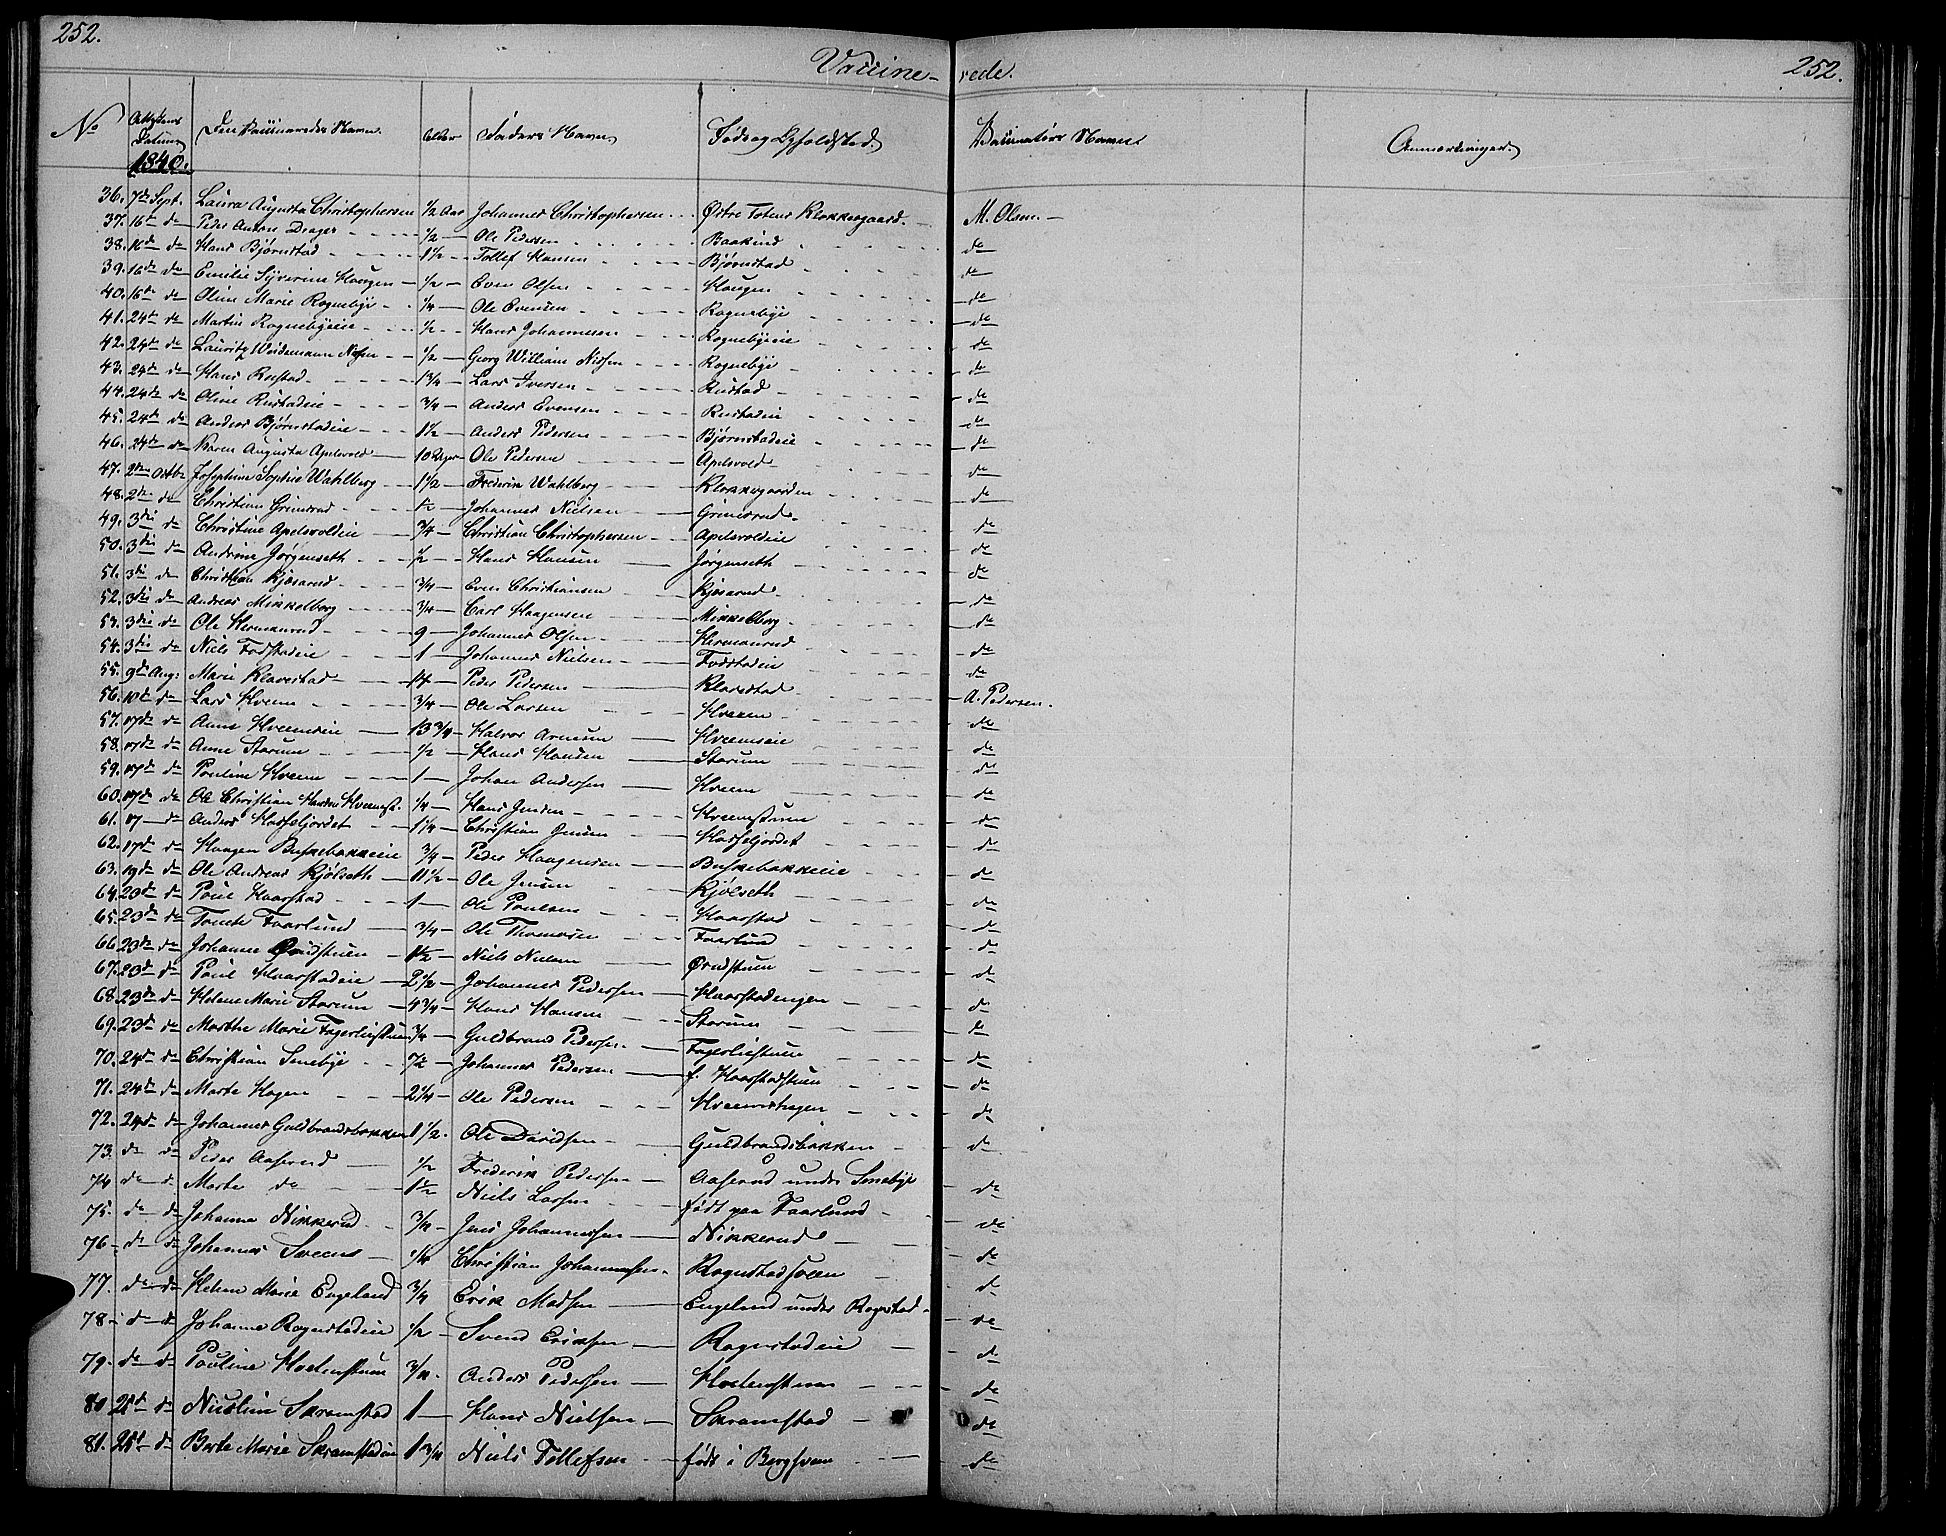 252.
Vaccine- rede. 252.
No Attestens Datum 1840. Den Vaccineredes Navn. Alder Faders Navn Føde og Opholdsted. Vaccinatørs Navn. Anmærkninger.
36. 7de Sept. Laura Augusta Christophersen 1/2 Aar Johannes Christophersen Østre Totens Klokkergaard. M. Olsen.
37. 16de do Peder Anton Drager 1/2 Ole Pedersen Baakind do
38. 16de do Hans Bjørnstad 1 1/2 Tollef Hansen Bjørnstad do
39. 16de do Emilie Syverine Haugen 1/2 Even Olsen Haugen do
40. 16de do Oline Marie Rognebye 1/4 Ole Evensen Rognebye do
41. 24de do Martin Rognebyeie 1/2 Hans Johannesen Rognebyeie do
42. 24de do Lauritz Weidemann Nissen 1/2 Georg William Nissen Rognebye do
43. 24de do Hans Rustad 1 3/4 Lars Iversen Rustad do
44. 24de do Oline Rustadeie 3/4 Anders Evensen Rustadeie do
45. 24de do Anders Bjørnstadeie 1 1/2 Anders Pedersen Bjørnstadeie do
46. 24de do Karen Augusta Apelsvold 10 Uger Ole Pedersen Apelsvold do
47. 2den Octbr Josephine Sophie Wahlberg 1 1/2 Frederik Wahlberg Klokkergaarden do
48. 2den do Christian Grimsrud 1/2 Johannes Nielsen Grimsrud do
49. 3die do Christine Apelsvoldeie 3/4 Christian Christophersen Apelsvoldeie do
50. 3die do Andrine Jørgenseth 1/2 Hans Hansen Jørgenseth do
51. 3die do Christian Kjøserud 3/4 Even Christiansen Kjøserud do
52. 3die do Andreas Mikkelborg 3/4 Carl Haagensen Mikkelborg do
53. 3die do Ole Hermanrud 9 Johannes Olsen Hermanrud do
54. 3die do Niels Fodstadeie 1 Johannes Nielsen Fodstadeie do
55. 9de Aug: Marie Klavestad 14 Peder Pedersen Klavestad do
56. 10de do Lars Kveem 3/4 Ole Larsen Hveem A. Pedersen.
57. 17de do Anne Hveemseie 13 3/4 Halvor Arnesen Hveemseie do
58. 17de do Anne Starum 1/2 Hans Hansen Starum do
59. 17de do Pouline Hveem 1 Johan Andersen Hveem do
60. 17de do Ole Christian Hansen Hveemst. 1/4 Hans Jensen Hveemstuen do
61. 17 do Anders Hasseljordet 1 1/4 Christian Jensen Hasseljordet do
62. 17de do Haagen Buskebakkeie 3/4 Peder Haagensen Buskebakkeie do
63. 19de do Ole Andreas Kjølseth 11 1/2 Ole Jensen Kjølseth do
64. 20de do Poul Haarstad 1 Ole Poulsen Haarstad do
65. 23de do Tomte Faarlund 3/4 Ole Thomesen Faarlund do
66. 23de do Johanne Qvidstuen 1 1/2 Niels Nielsen Qvidstuen do
67. 23de do Poul Haarstadeie 2 1/2 Johannes Pedersen Haarstadengen do
68. 23de do Helene Marie Starum 4 3/4 Hans Hansen Starum do
69. 23de do Marthe Marie Fagerliestuen 3/4 Guldbrand Pedersen Fagerliestuen do
70. 24de do Christian Smebye 7/2 Johannes Pedersen f. Haarstadstuen do
71. 24de do Marte Hagen 2 1/4 Ole Pedersen Hveemshagen do
72. 24de do Johannes Guldbrandsbakken 1 1/2. Ole Davidsen Guldbrandsbakken do
73. do do Peder Aaserud 1/2 Frederik Pedersen Aaserud under Smebye
74 do do Marte do 1 1/2 Niels Larsen født paa Faarlund do
75. do do Johanne Nikkerud 3/4 Jens Johannessen Nikkerud do
76 do do Johannes Sveens 1/4 Christian Johannessen Rognstadsveen do
77. do do Helene Marie Engeland 3/4 Erik Madsen Engeland under Rognstad do
78 do do Johanne Rognstadeie 1/2 Svend Eriksen Rognstadeie do
79. do do Pouline Holtenstuen 3/4 Anders Pedersen Holtenstuen do
80 25de do Nicoline Skramstad 1 Hans Nielsen Skramstad do
81. 25de do Berte Marie Skramstadeie 1 3/4 Niels Tollefsen født i Bergsveen do